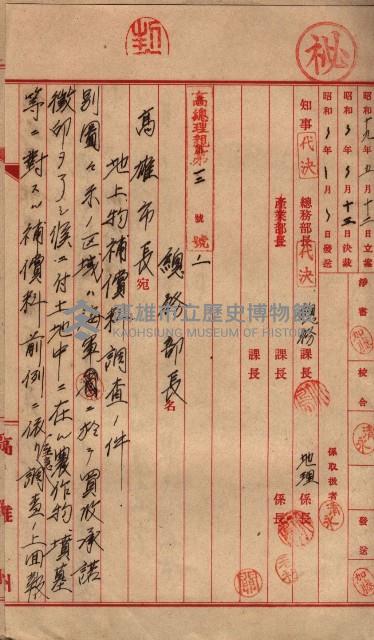 秘
昭和十九年五月十二日立案
昭和 年 月十五日決裁
昭和 年 月 日發送
淨書
校合
發送
知事 代決
總務部長 代決
產業部長
總務課長
課長
課長
係取扱者
地理係長
係長
高總理報第三號ノ一
總務部長名
高雄市長宛
地上物補償料調查ノ件
別圖ニ示ス區域ハ海軍ニ於テ買收承諾
徵印ヲ了シ候ニ付土地中ニ在ル農作物墳墓
等ニ對スル補償料前例ニ依リ調查ノ上回報
高雄州
高雄市立歷史博物館
KAOHSIUNG MUSEUM OF HISTORY